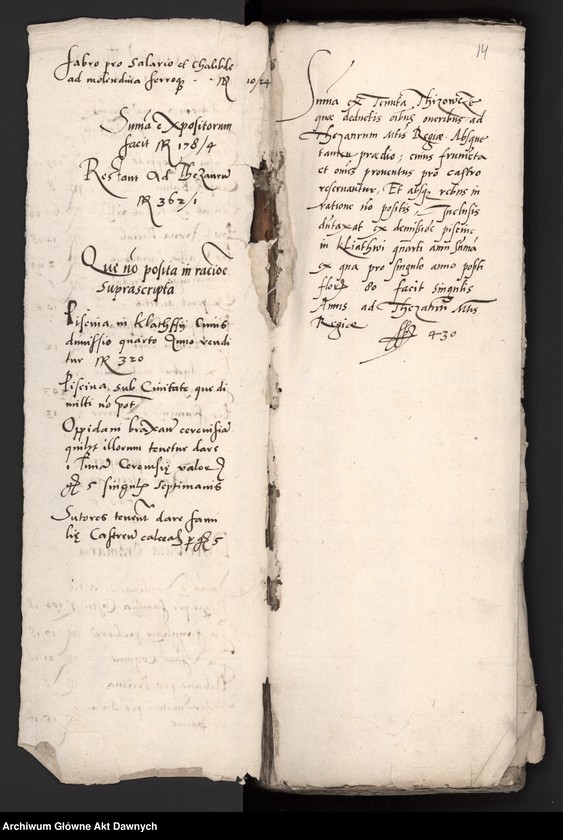 Fabro pro Salario et Chalibde
ad molendina ferroq 10/24
Suma expositorum
facit 178/4
Restant ad Thezaurum
362/1
Que nō posita in racioē
suprascripta
Piscina in Klathffy Cuius
dmissio quarto Anno vendi
tur 320
Piscina sub Civitate que di
mitti nō pot
Oppidani braxant cerevisiā
quilibet illorum tenetur dare
1 Cerevisie valor
5 singulis septimanis
Sutores tenent dare fami
lie Castren calceos 5
14
Suma ex Tenuta Thizowecze
quæ deductis oibus oneribus ad
Thezaurum Mtis Regiæ Absque
tamen prædio; cuius frumēta
et omēs proventus pro castro
reservantur. Et absq rebus in
ratione nō positis, Inclusis
duntaxat ex demissioē piscinæ
in Klathwi quarti anni suma
ex qua pro singulo anno positi
flor 80 facit singulis
Annis ad Thezaurū Mtis
Regiæ
430
Archiwum Główne Akt Dawnych